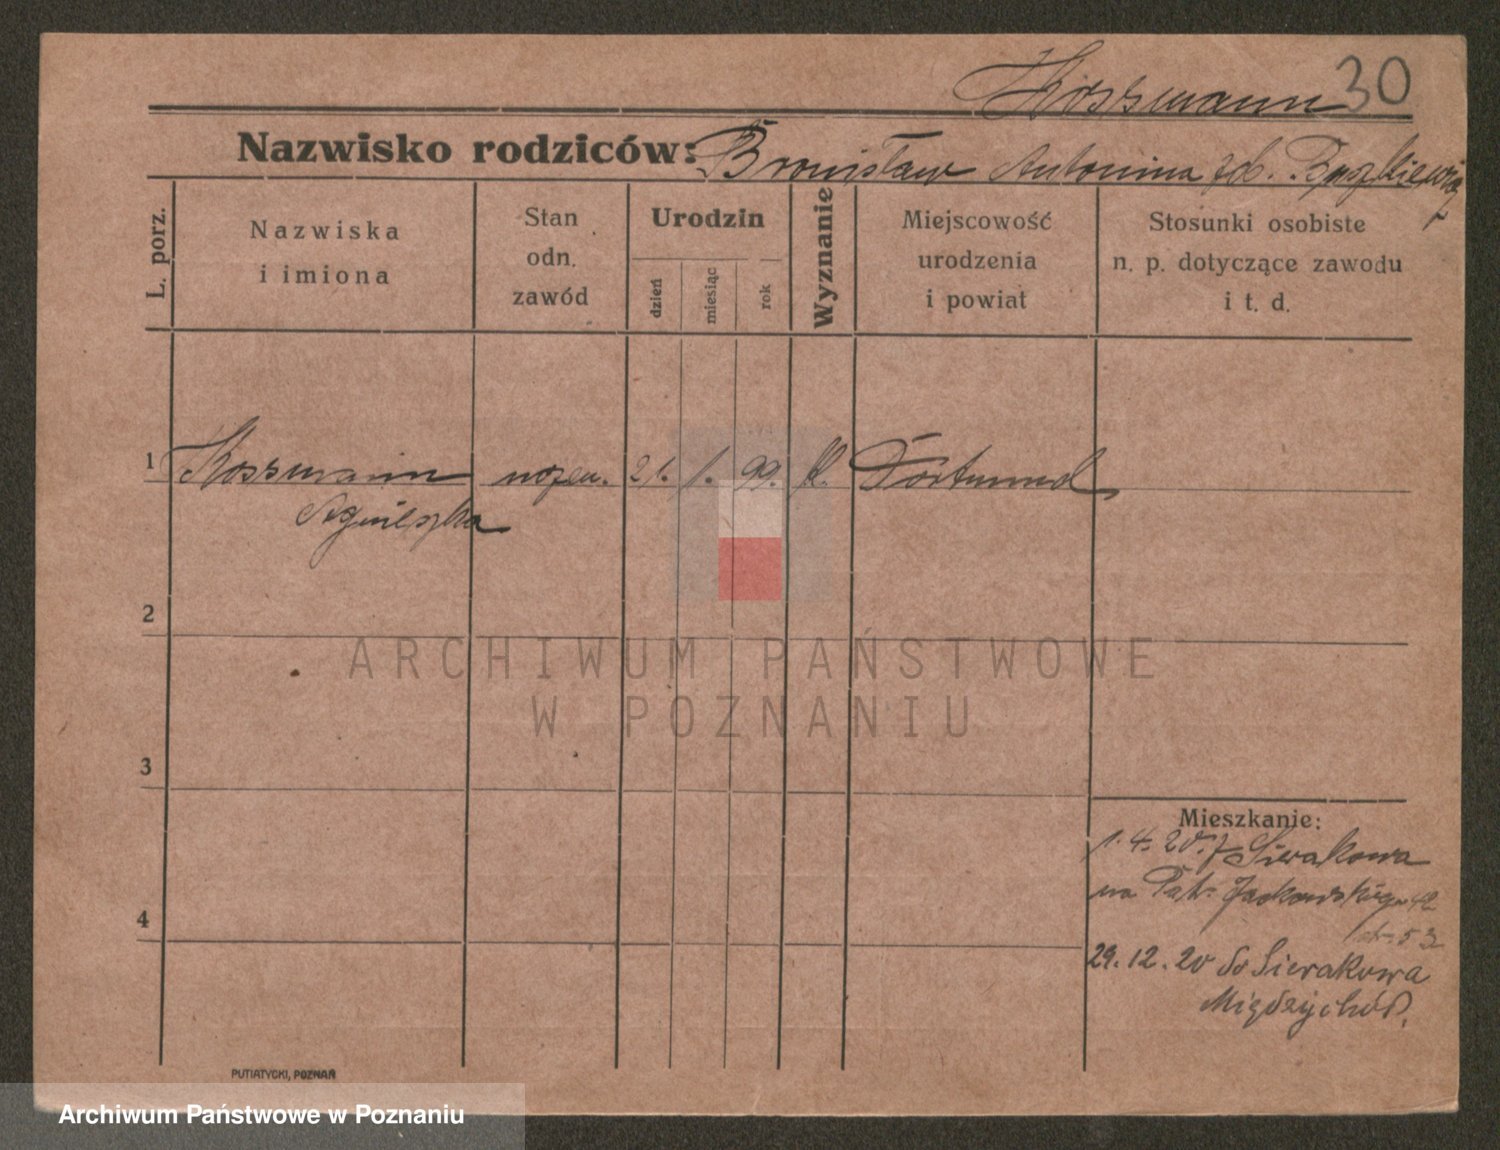 Kossmann 30
Nazwisko rodziców: Bronisław Antonina
L. porz.
Nazwiska
i imiona
Stan
odn.
zawód
Urodzin
dzień
miesiąc
rok
Wyznanie
Miejscowość
urodzenia
i powiat
Stosunki osobiste
n. p. dotyczące zawodu
i t. d.
1 Kossmann 21. 1. 99. Dortmund
Agnieszka
2
3
4
Mieszkanie:
1. 4. 20. z Sierakowa
na Jackowskiego 42
53
29. 12. 20 do Sierakowa
Międzychód.
PUTIATYCKI, POZNAŃ
ARCHIWUM PAŃSTWOWE
W POZNANIU
Archiwum Państwowe w Poznaniu